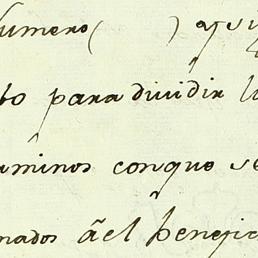 numero ( )
to para dividir
minos conque se
nados âel benefic